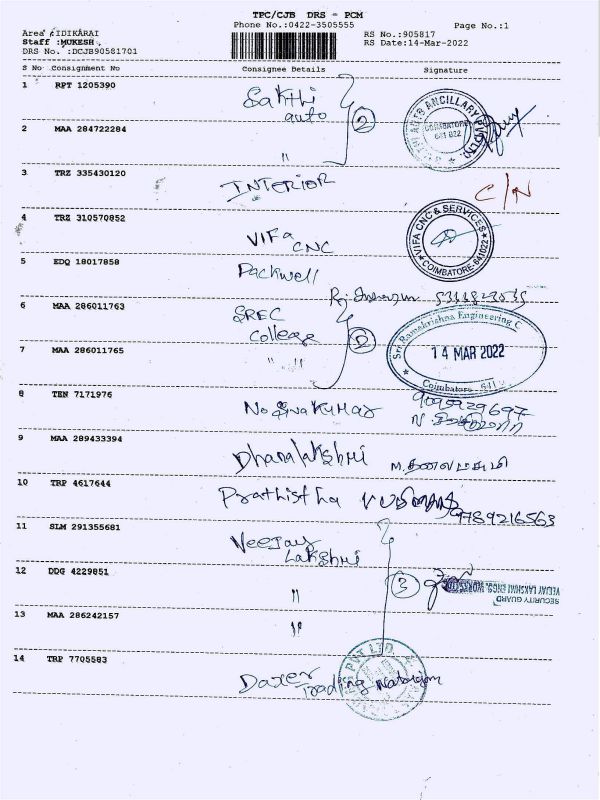 TPC/CJB DRS - PCM
Phone No.:0422-3505555 Page No.:1
Area :IDIKARAI RS No.:905817
Staff :MUKESH, RS Date:14-Mar-2022
DRS No. :DCJB90581701
S No Consignment No Consignee Details Signature
1 RPT 1205390 Sakthi auto
2 MAA 284722284 "
COIMBATORE
3 TRZ 335430120 INTERIOR C/N
4 TRZ 310570852 VIFA CNC
VIFA CNC & SERVICES
COIMBATORE-641022
5 EDQ 18017858 Packwell
6 MAA 286011763 SREC College
7 MAA 286011765 " "
Sri Ramakrishna Engineering C
14 MAR 2022
Coimbatore - 641
8 TEN 7171976
9 MAA 289433394 Dhanalakshmi M. தனலட்சுமி
10 TRP 4617644 Prathistha 9789216563
11 SLM 291355681 Veejay Lakshmi
12 DDG 4229851 " 3
SECURITY GUARD
VEEJAY LAKSHMI ENGG. WORKS
13 MAA 286242157 "
14 TRP 7705583 Trading
PVT LTD.